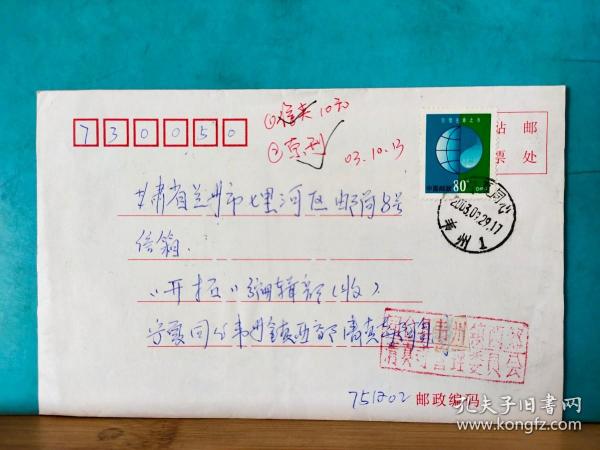 730050
①信夹10元
②原刊
03.10.13
中国邮政 80
贴邮
票处
2003.09.29.17
甘肃省兰州市七里河区邮局8号
信箱
《开拓》编辑部(收)
宁夏同心韦州镇西部清真寺
清真寺管理委员会
751202 邮政编码
孔夫子旧书网
www.kongfz.com